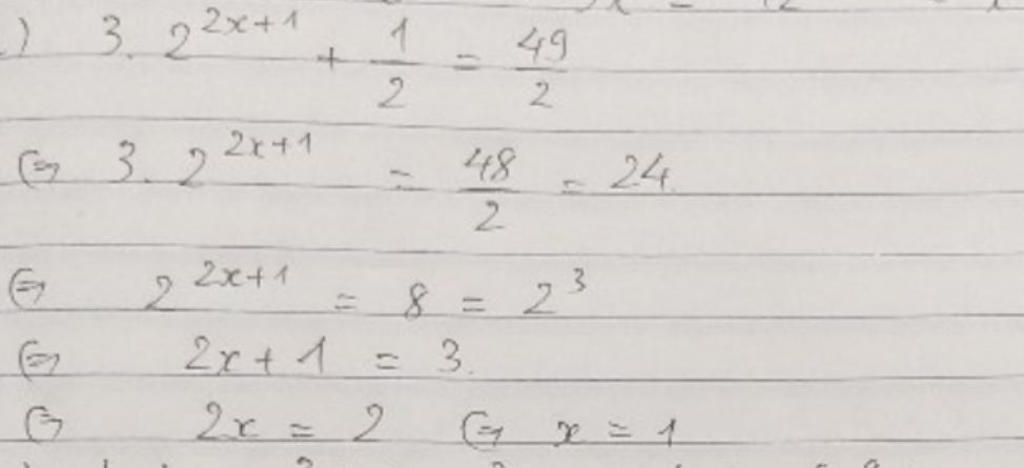 ) 3. 2^{2x+1} + 1/2 = 49/2
⇔ 3. 2^{2x+1} = 48/2 = 24.
⇔ 2^{2x+1} = 8 = 2^3
⇔ 2x+1 = 3.
⇔ 2x = 2 ⇔ x = 1